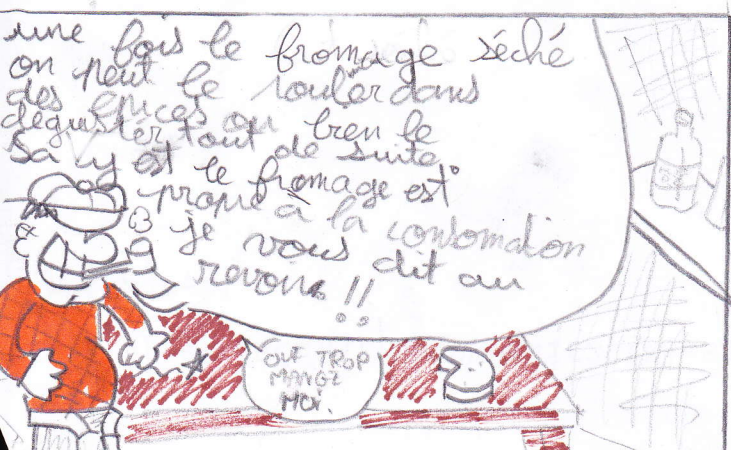 une fois le fromage séché
on peut le rouler dans
des épices ou bien le
déguster tout de suite
Sa y est le fromage est
propre a la consomation
je vous dit au
revoir !!
OUF TROP
MANGE
MOI.